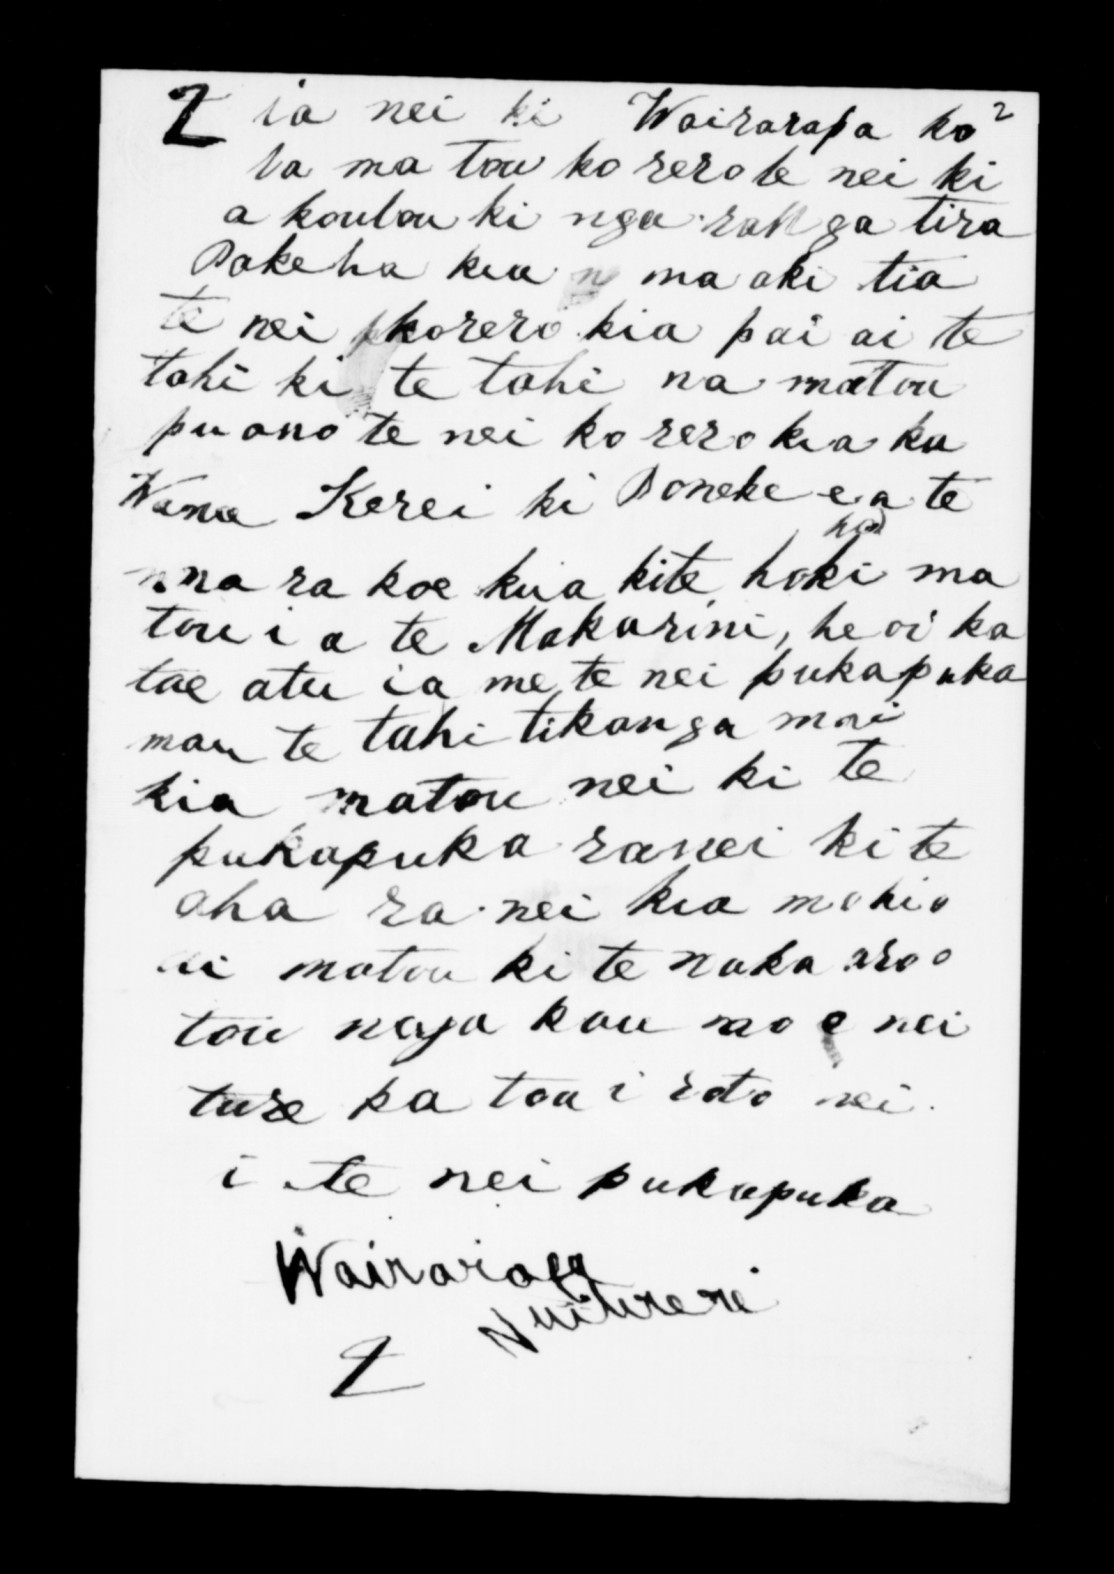 2 ia nei ki Wairarapa ko 2
ta ma tou ko rero te nei ki
a koutou ki nga ranga tira
Pakeha kia ma aki tia
te nei korero kia pai ai te
tahi ki te tahi na matou
pu ano te nei ko rero kia ka
Wana Kerei ki Poneke e a te
ma ra koe kua kite hoki ma
tou i a te Makarini, he oi ka
tae atu ia me te nei pukapuka
mau te tahi tikanga mai
kia matou nei ki te
pukapuka ranei ki te
aha ra nei kia mohio
ai matou ki te naka aro o
tou ngakau mo e nei
ture ka tou i roto nei
i te nei pukapuka
Wairarapa
Nuitireni
2